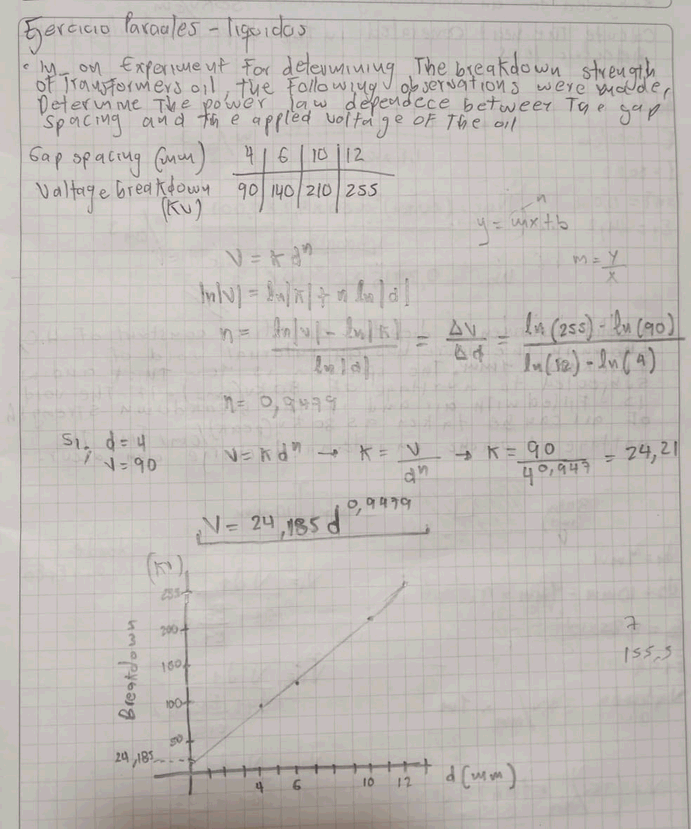 Ejercicio Paraales - liquidos
• in on Experiment For determining The breakdown strength
of Transformers oil, the following observations were made,
Determine The power law dependece between The gap
spacing and the appled voltage of The oil
Gap spacing (mm) 4 6 10 12
Voltage breakdown 90 140 210 255
(KV)
n
y = mx+b
m = y/x
V = K dⁿ
ln|V| = ln|K| + n ln|d|
n = ln|V| - ln|K| / ln|d| = ΔV/Δd = ln(255) - ln(90) / ln(12) - ln(4)
n = 0,9479
Si; d = 4
V = 90
V = K dⁿ → K = V/dⁿ → K = 90/4^0,947 = 24,21
V = 24,185 d^0,9479
(KV)
255
200
150
100
50
24,185
Breakdown
4 6 10 12 d (mm)
7
155,5